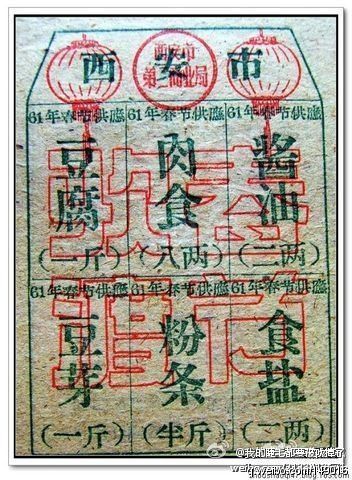 西安市
西安市
第二商业局
61年春节供應 61年春节供應 61年春节供應
豆腐 肉食 酱油
(一斤) (八两) (二两)
61年春节供應 61年春节供應 61年春节供應
豆芽 粉条 食盐
(一斤) (半斤) (二两)